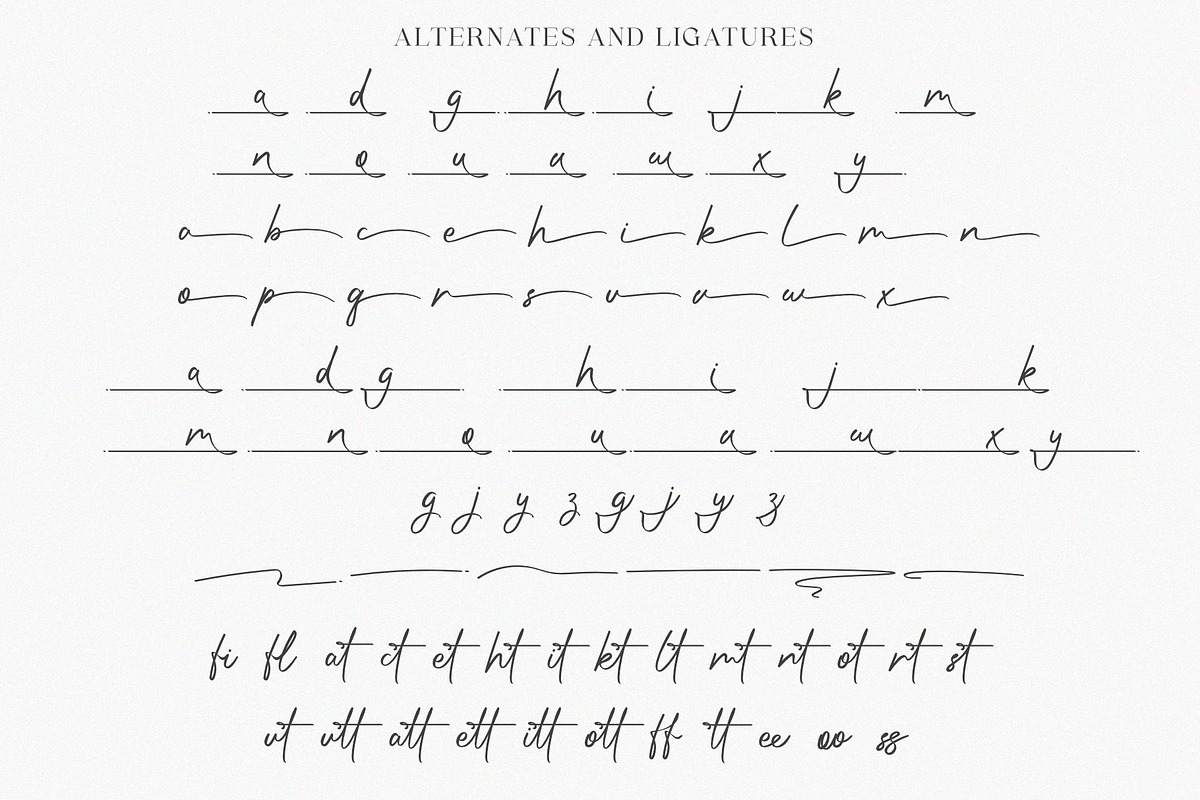 ALTERNATES AND LIGATURES
a d g h i j k m
n o u a w x y
a b c e h i k l m n
o p q r s u a w x
a d g h i j k
m n o u a w x y
g j y z g j y z
fi fl at ct et ht it kt lt mt nt ot rt st
ut utt att ett itt ott ff tt ee oo ss